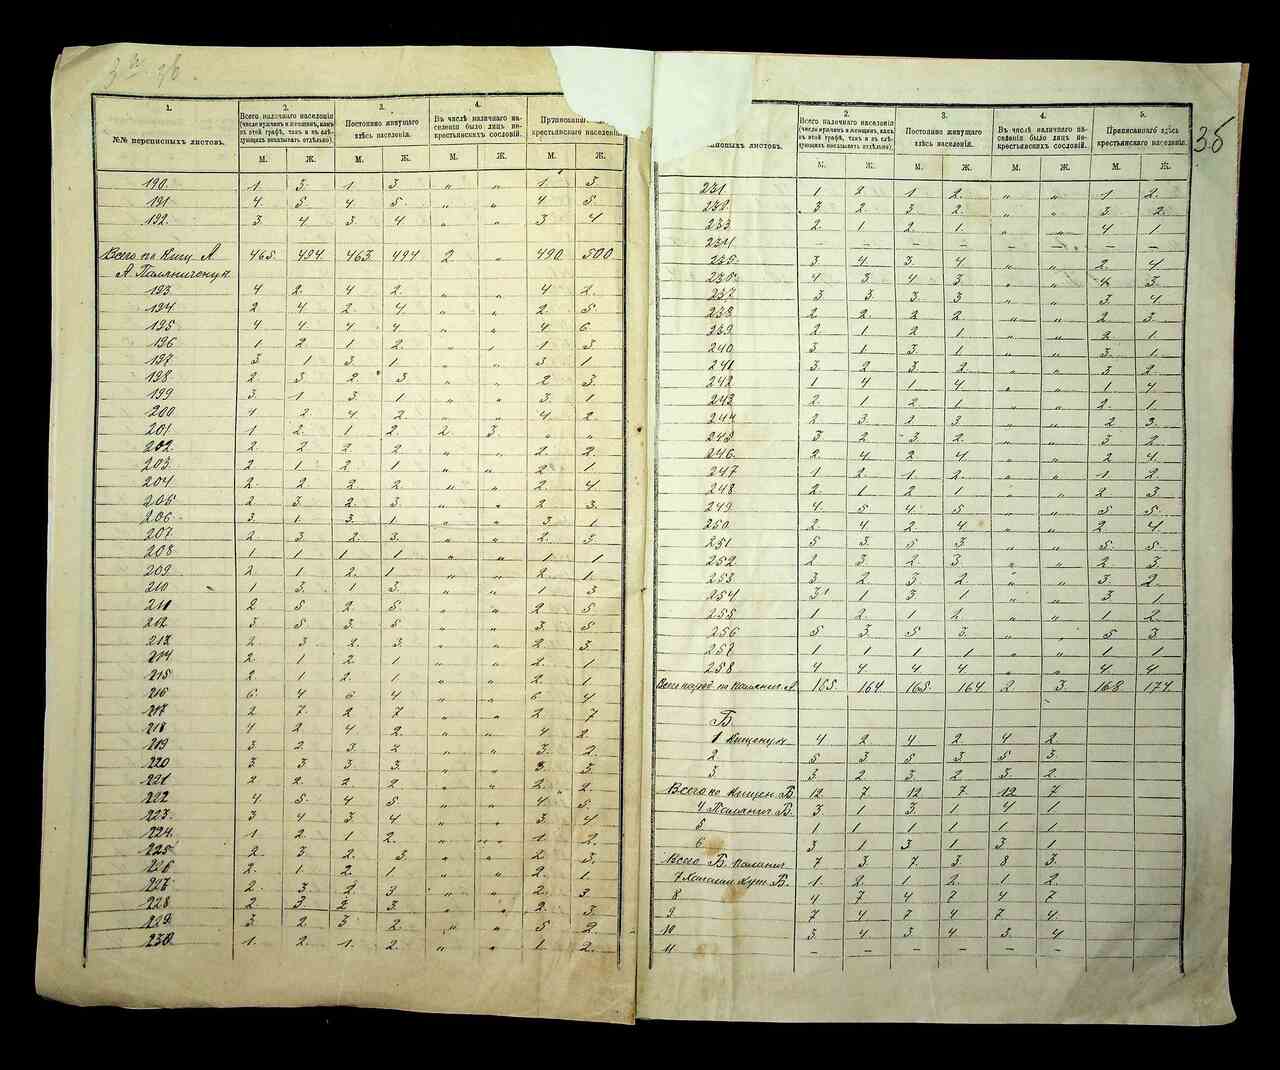 1.
№№ переписныхъ листовъ.
2.
Всего наличнаго населенія
(число мужчинъ и женщинъ, какъ
въ этой графѣ, такъ и въ слѣ-
дующихъ показывать отдѣльно).
3.
Постоянно живущаго
здѣсь населенія.
4.
Въ числѣ наличнаго на-
селенія было лицъ не-
крестьянскихъ сословій.
крестьянскаго населенія.
М. Ж. М. Ж. М. Ж. М. Ж.
190. 1. 3. 1 3. „ „ 1 3
191 4. 5 4. 5. „ „ 4 5.
192. 3 4 3 4 „ „ 3 4
Всего по А 465. 494 463 494 2 „ 490 500
193 4 2. 4 2. „ „ 4 2.
194 2 4 2 4 „ „ 2. 5.
195 4 4. 4 4 „ „ 4 6
196 1 2 1 2. „ „ 1. 3
197 3 1 3 1 „ „ 3 1
198 2. 3. 2. 3. „ „ 2 3.
199 3. 1 3 1 „ „ 3. 1
200 4 2. 4 2. „ „ 4. 2
201 1 2. 1 2. 2 3. „ „
202 2 2 2 2 „ „ 2. 2.
203. 2 1. 2 1 „ „ 2 1
204 2. 2. 2 2 „ „ 2. 4
205 2 3. 2 3. „ „ 2 3.
206 3. 1. 3. 1 „ „ 3. 1
207. 2 3 2. 3. „ „ 2. 3.
208 1 1 1 1 „ „ 1 1
209. 2 1 2. 1 „ „ 2. 1.
210 1 3. 1 3. „ „ 1 3
211 2 5 2. 5. „ „ 2 5
212 3 5 3. 5 „ „ 3. 5
213 2 3 2. 3. „ „ 2 3.
214 2. 1 2. 1 „ „ 2. 1
215 2 1 2. 1 „ „ 2. 1
216 6 4 6 4 „ „ 6 4
217 2 7. 2 7 „ „ 2 7
218 4 2 4 2. „ „ 4 2.
219 3 2. 3 2 „ „ 3. 2.
220 3. 3 3 3. „ „ 3. 3.
221 2 2. 2. 2 „ „ 2. 2.
222 4 5. 4 5 „ „ 4 5.
223. 3 4 3 4 „ „ 3. 4
224. 1 2. 1 2. „ „ 1. 2.
225. 2. 3 2. 3. „ „ 2 3.
226 2. 1 2. 1 „ „ 2. 1
227 2. 3. 2 3 „ „ 2. 3
228 2. 3. 2 3. „ „ 2. 3.
229. 3 2 3 2. „ „ 5 2.
230. 1. 2. 1. 2. „ „ 1 2.
36
2.
Всего наличнаго населенія
(число мужчинъ и женщинъ, какъ
въ этой графѣ, такъ и въ слѣ-
дующихъ показывать отдѣльно).
3.
Постоянно живущаго
здѣсь населенія.
4.
Въ числѣ наличнаго на-
селенія было лицъ не-
крестьянскихъ сословій.
5.
Приписаннаго здѣсь
крестьянскаго населенія.
листовъ.
М. Ж. М. Ж. М. Ж. М. Ж.
231 1 2. 1 2. „ „ 1 2.
232 3 2. 3 2. „ „ 3. 2.
233 2. 1 2. 1. „ „ 4 1
234 – – – – – – – –
235. 3 4 3. 4 „ „ 2. 4
236. 4 3. 4 3. „ „ 4 3.
237 3 3. 3. 3 „ „ 3. 4.
238 2 2. 2 2 „ „ 2 3
239. 2 1 2 1 „ „ 2 1
240 3 1 3. 1 „ „ 3. 1.
241 3. 2 3. 2. „ „ 3 2.
242 1 4 1 4 „ „ 1 4
243 2. 1 2 1 „ „ 2. 1.
244 2 3. 2 3 „ „ 2 3.
245 3 2. 3 2. „ „ 3 2.
246. 2. 4 2 4 „ „ 2 4.
247 1 2. 1 2. „ „ 1 2.
248 2. 1 2 1 „ „ 2 3
249 4. 5 4. 5 „ „ 5 5
250. 2. 4 2 4 „ „ 2 4
251 5 3. 5 3. „ „ 5. 5
252 2 3. 2. 3. „ „ 2 3.
253 3. 2. 3. 2. „ „ 3. 2.
254 3 1 3 1 „ „ 3 1
255 1 2. 1 2. „ „ 1 2
256 5 3. 5 3. „ „ 5 3
257 1 1 1 1 „ „ 1 1
258 4 4. 4 4 „ „ 4 4
165. 164 165. 164 2 3. 168 174
Б.
1 4 2 4 2. 4 2
2 5 3 5 3. 5 3.
3 3 2 3. 2 3. 2.
Всего по Б. 12 7. 12 7 12 7
4 Б. 3 1 3. 1 4 1
5 1 1 1 1 1 1
6 3 1 3 1 3. 1
Всего Б 7 3 7 3 8 3.
7 Хут. Б. 1 2. 1 2. 1 2
8 4 7 4 7 4 7
9 7 4 7 4 7 4.
10 3. 4 3 4 3. 4
11 – – – – – –